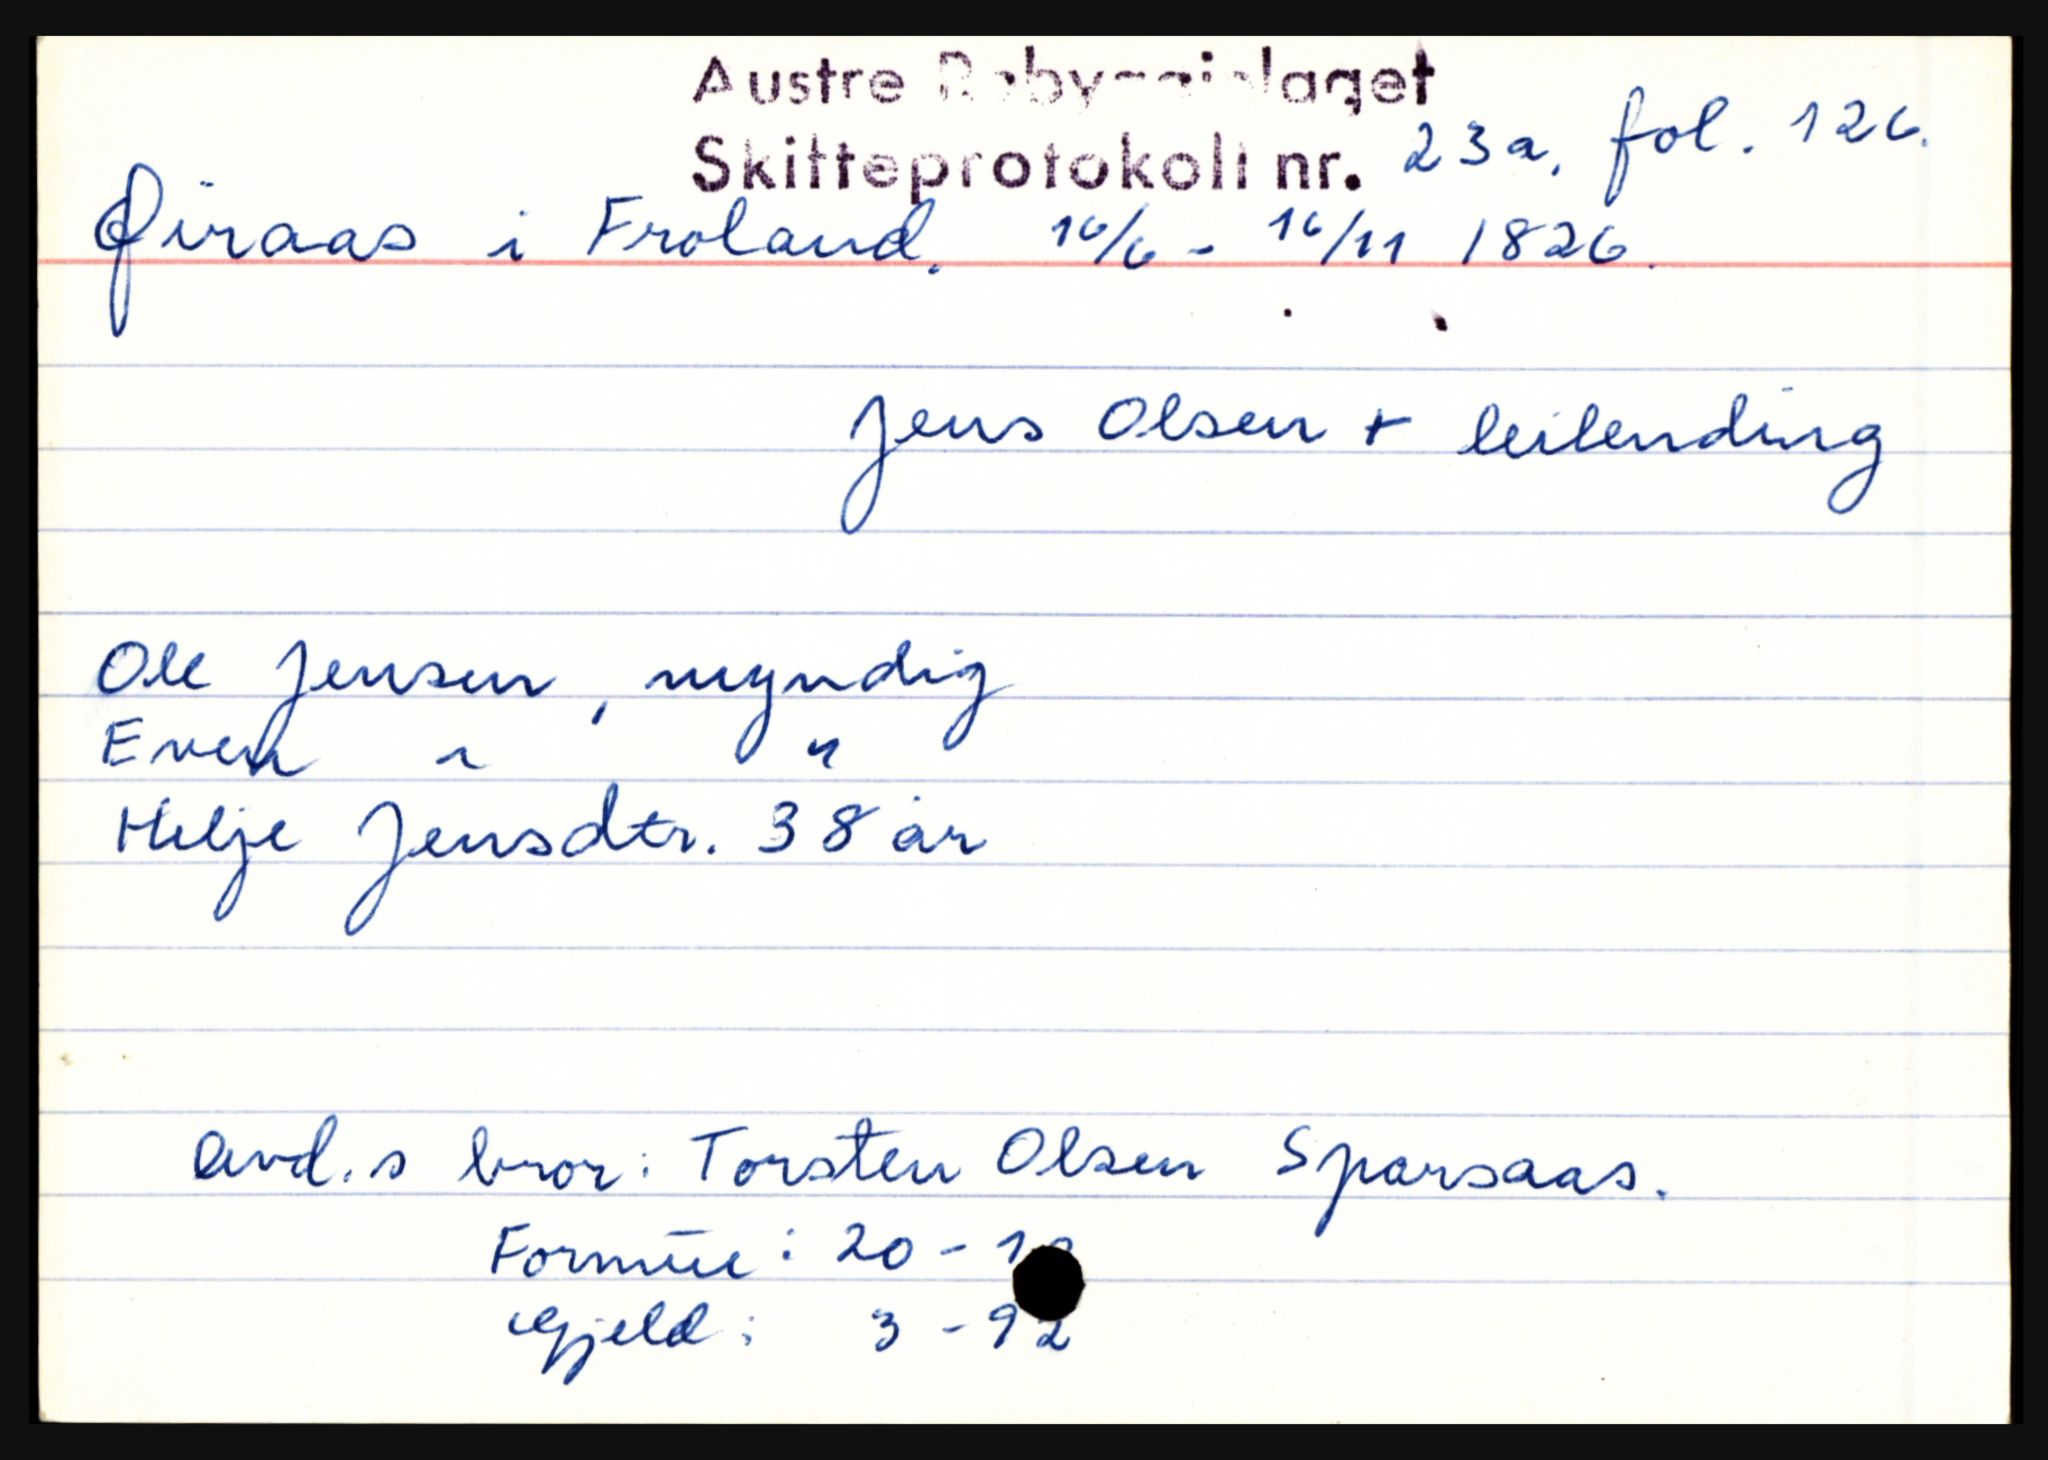 Austre Rabyggjelaget
Skifteprotokoll nr. 23a, fol. 126.
Øiraas i Froland. 16/6 - 16/11 1826.
Jens Olsen + leilending
Ole Jensen, myndig
Even " "
Helje Jensdtr. 38 år
Avd.s bror: Torsten Olsen Sparsaas.
Formue: 20 -
Gjeld: 3 - 92